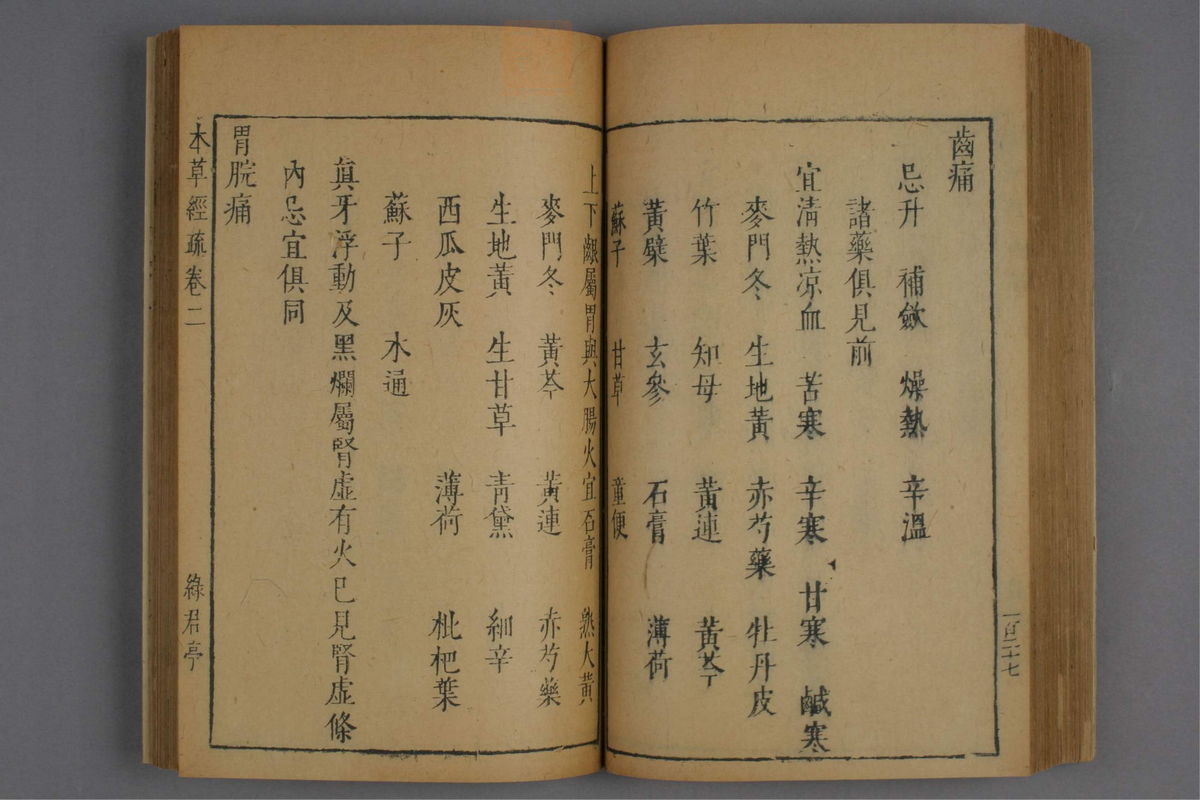 齒痛
忌升　補斂　燥熱　辛溫
諸藥俱見前
宜淸熱凉血　苦寒　辛寒　甘寒　鹹寒
麥門冬　生地黃　赤芍藥　牡丹皮
竹葉　知母　黃連　黃芩
黃檗　玄參　石膏　薄荷
蘇子　甘草　童便
一百二十七
上下齦屬胃與大腸火宜石膏　熟大黃
麥門冬　黃芩　黃連　赤芍藥
生地黃　生甘草　靑黛　細辛
西瓜皮灰　薄荷　枇杷葉
蘇子　木通
眞牙浮動及黑爛屬腎虛有火已見腎虛條
內忌宜俱同
胃脘痛
本草經疏卷二
綠君亭